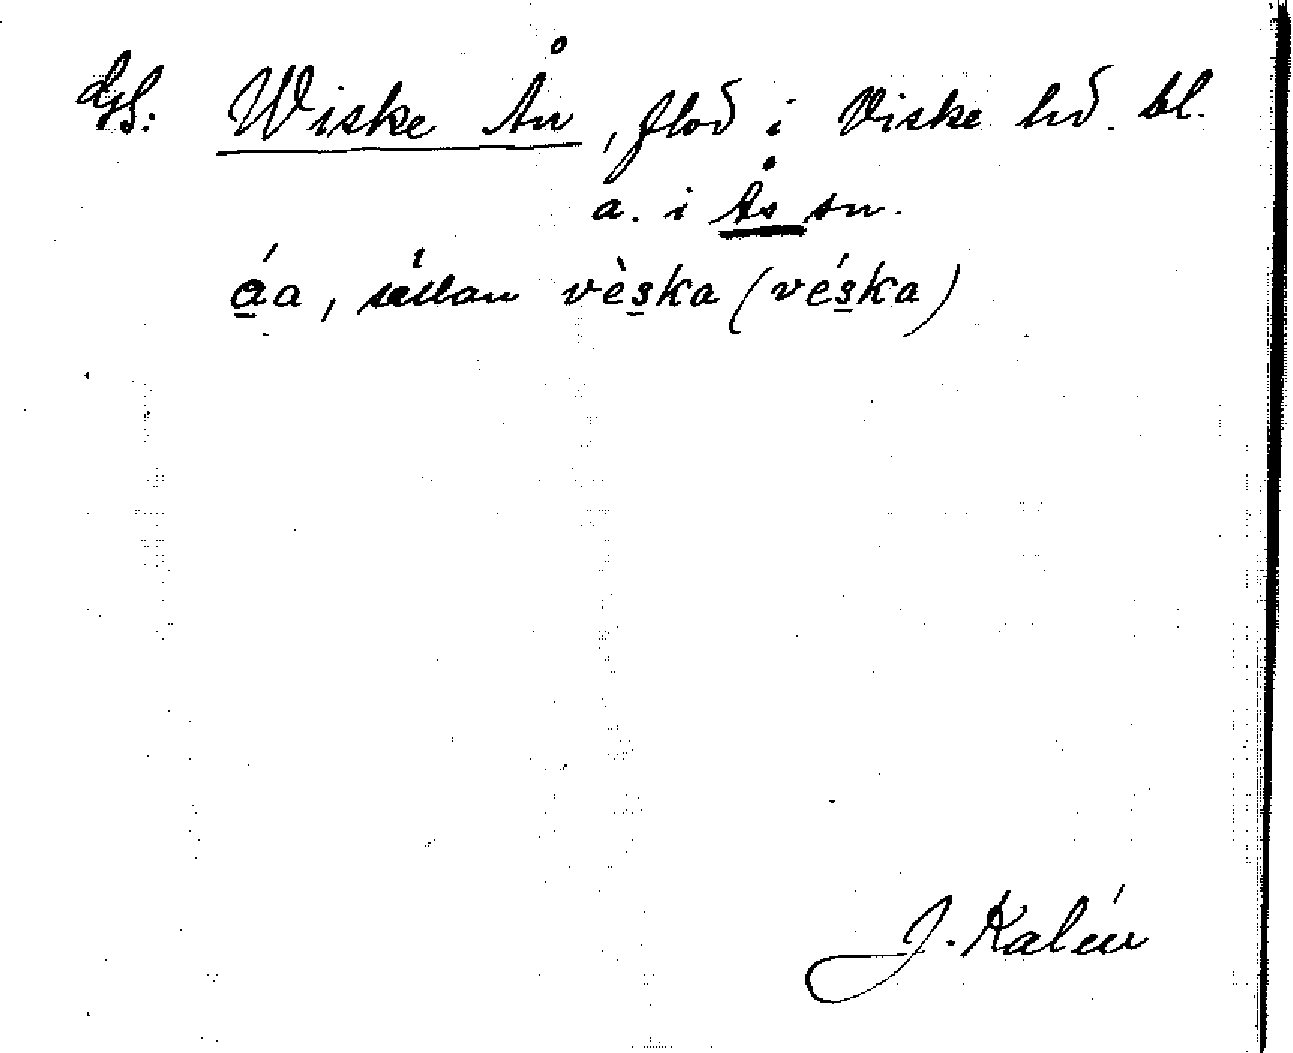 GS: Wiske Ån, flod i Viske hd. bl.
a. i Ås sn.
á̱a, sällan vès̱ka (vés̱ka)
J. Kalén